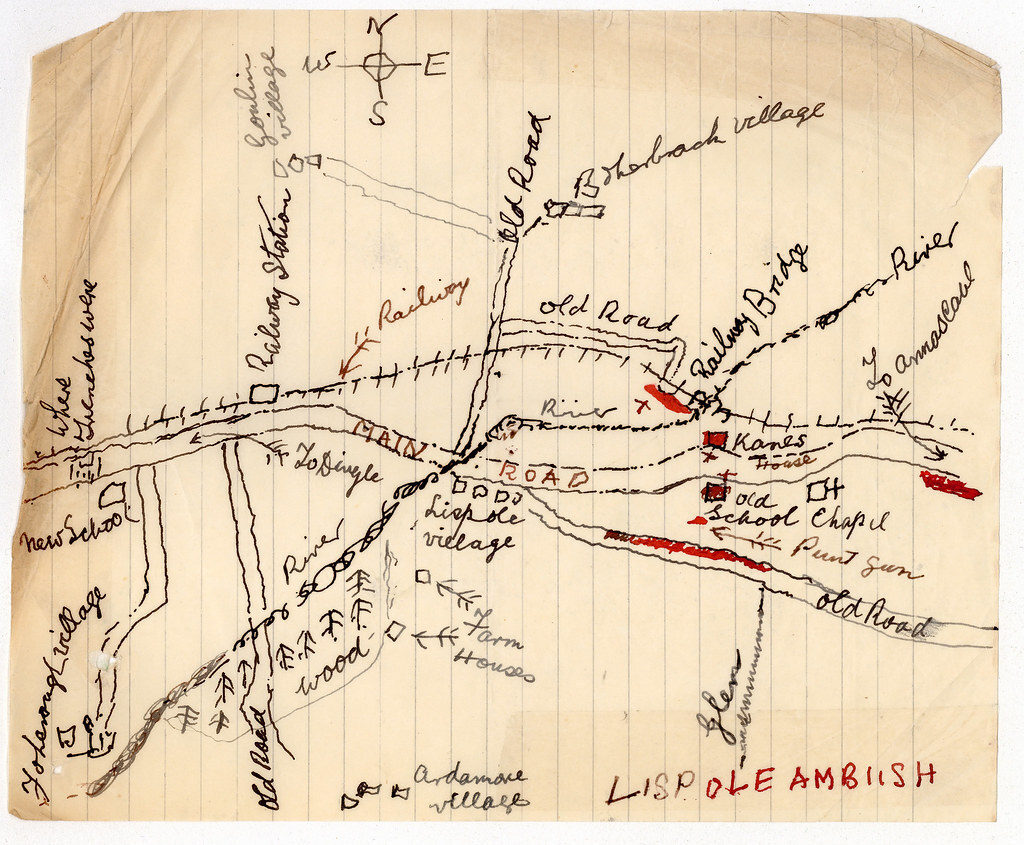 N
W E
S
Goulin
village
Old Road
Botherbrack village
Railway Station
Railway
Old Road
Railway Bridge
River
To Annascaul
Where
Trenches were
River
MAIN ROAD
Kanes
House
To Dingle
New School
Lispole
village
Old
School
Chapel
Punt Gun
River
Old Road
Farm
Houses
Wood
village
Old Road
Glen
Ardamore
village
LISPOLE AMBUSH